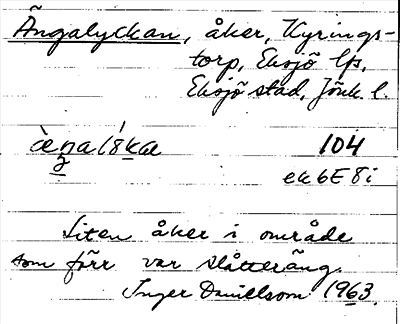 Ängalyckan, åker, Kyrings-
torp, Eksjö lfs,
Eksjö stad, Jönk. l.
104
ek6E8i
Liten åker i område
som förr var slåtteräng.
Inger Danielsson 1963.